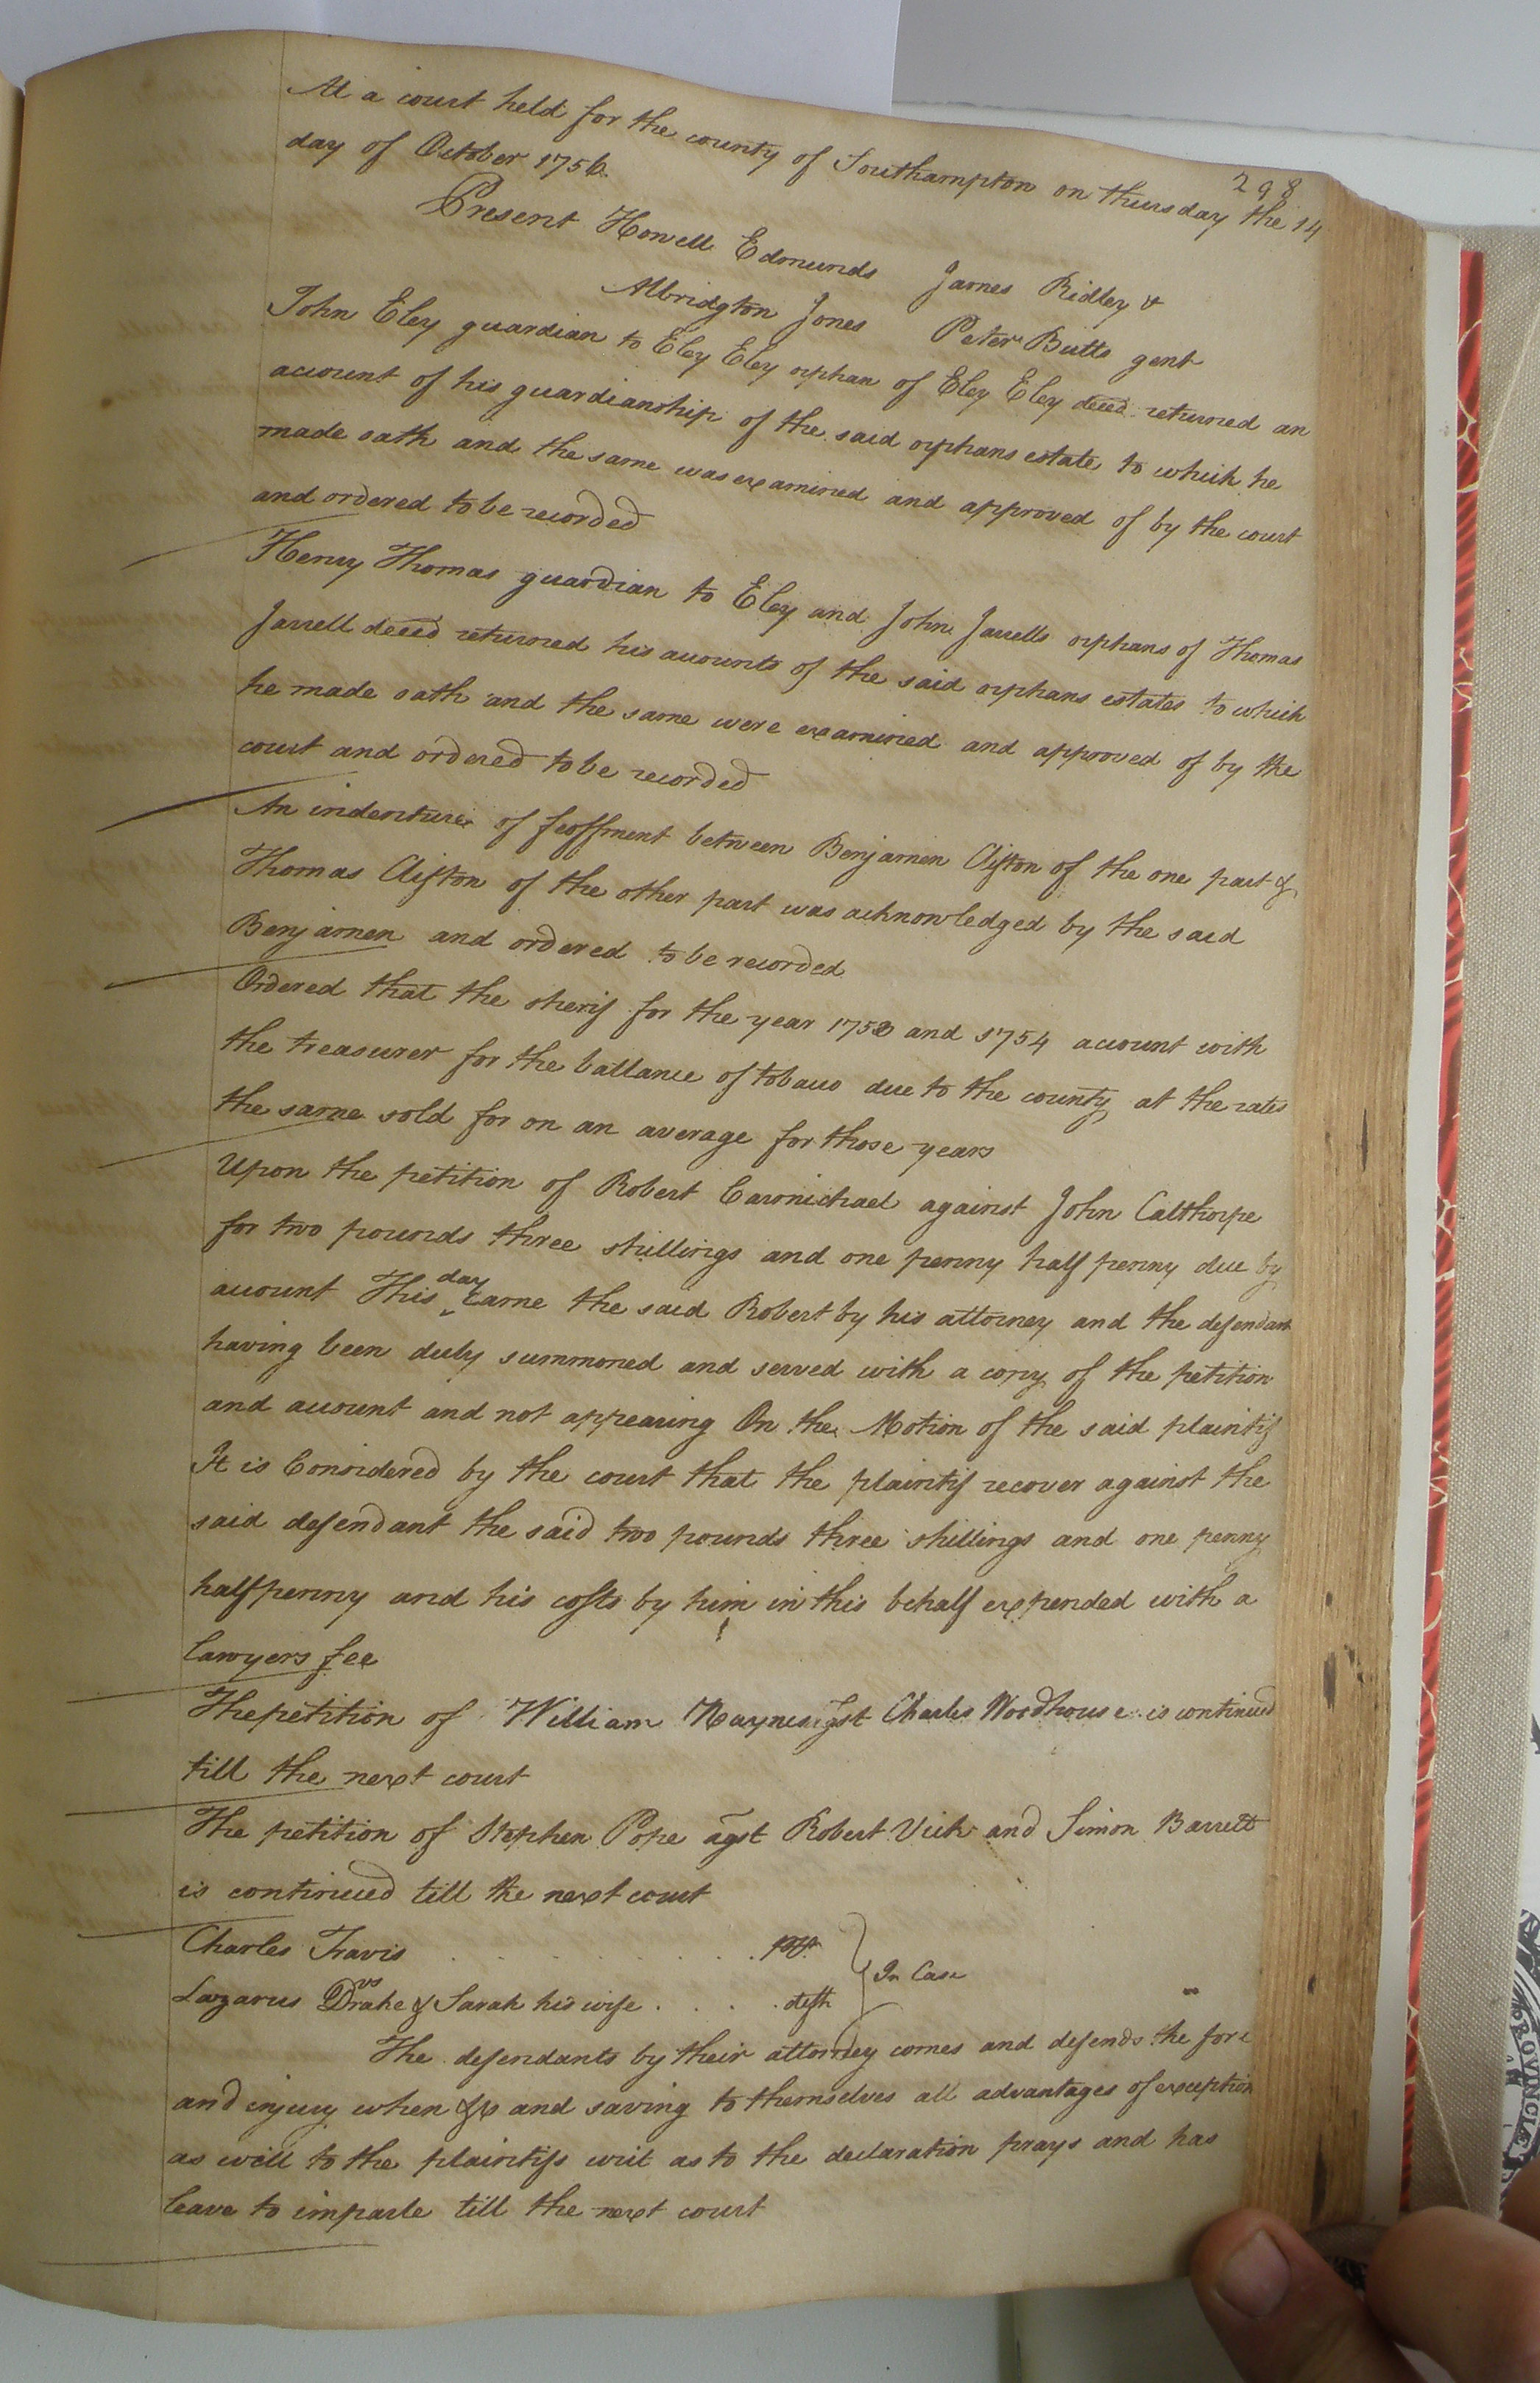 298
At a court held for the county of Southampton on thursday the 14
day of October 1756.
Present Howell Edmunds James Ridley &
Albridgton Jones Peter Butts gent
John Eley guardian to Eley Eley orphan of Eley Eley deced returned an
account of his guardianship of the said orphans estate to which he
made oath and the same was examined and approved of by the court
and ordered to be recorded
Henry Thomas guardian to Eley and John Jarrells orphans of Thomas
Jarrell deced returned his accounts of the said orphans estates to which
he made oath and the same were examined and approved of by the
court and ordered to be recorded
An indenture of feoffment between Benjamen Clifton of the one part &
Thomas Clifton of the other part was acknowledged by the said
Benjamen and ordered to be recorded
Ordered that the sherif for the year 1753 and 1754 account with
the treasurer for the ballance of tobacco due to the county at the rates
the same sold for on an average for those years
Upon the petition of Robert Carmichael against John Calthorpe
for two pounds three shillings and one penny half penny due by
account This day came the said Robert by his attorney and the defendant
having been duly summoned and served with a copy of the petition
and account and not appearing On the Motion of the said plaintif
It is Considered by the court that the plaintif recover against the
said defendant the said two pounds three shillings and one penny
halfpenny and his costs by him in this behalf expended with a
lawyers fee
The petition of William Haynes agst Charles Woodhouse is continued
till the next court
The petition of Stephen Pope agst Robert Vick and Simon Barrett
is continued till the next court
Charles Travis . . . . . . . . plt
vs In Case
Lazarus Drake & Sarah his wife . . . . deft
The defendants by their attorney comes and defends the force
and injury when &c and saving to themselves all advantages of exception
as well to the plaintifs writ as to the declaration prays and has
leave to imparle till the next court